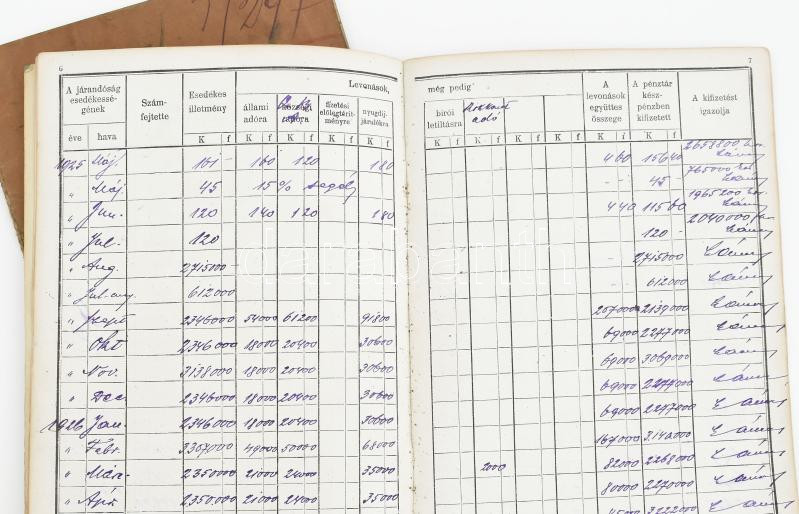 6
A járandóság esedékességének
éve
hava
Számfejtette
Esedékes illetmény
K f
Levonások,
állami adóra
K f
K f
fizetési előlegtérítményre
K f
nyugdíjjárulékra
K f
1925 Máj. 151 - 160 120 180
" Máj 45 15% segély
" Jun. 120 140 120 180
" Jul. 120
" Aug. 2715000
" Jul-aug. 612000
" Szept 2346000 54000 61200 91800
" Okt 2346000 18000 20400 30600
" Nov. 3138000 18000 20400 30600
" Dec 2346000 18000 20400 30600
1926 Jan. 2346000 18000 20400 30600
" Febr. 3367000 49000 50000 68000
" Márc. 2350000 21000 24000 35000
" Ápr. 2350000 21000 24000 35000
7
még pedig
bírói letiltásra
K f
Rokkant adó
K f
K f
K f
A levonások együttes összege
K f
A pénztár készpénzben kifizetett
K f
A kifizetést igazolja
460 15640 2658800
- 45 - 765000
440 11560 1965200
120 - 2040000
2715000
612000
207000 2139000
69000 2277000
69000 3069000
69000 2277000
69000 2277000
167000 3140000
2000 82000 2268000
80000 2270000
3222000
darabanth